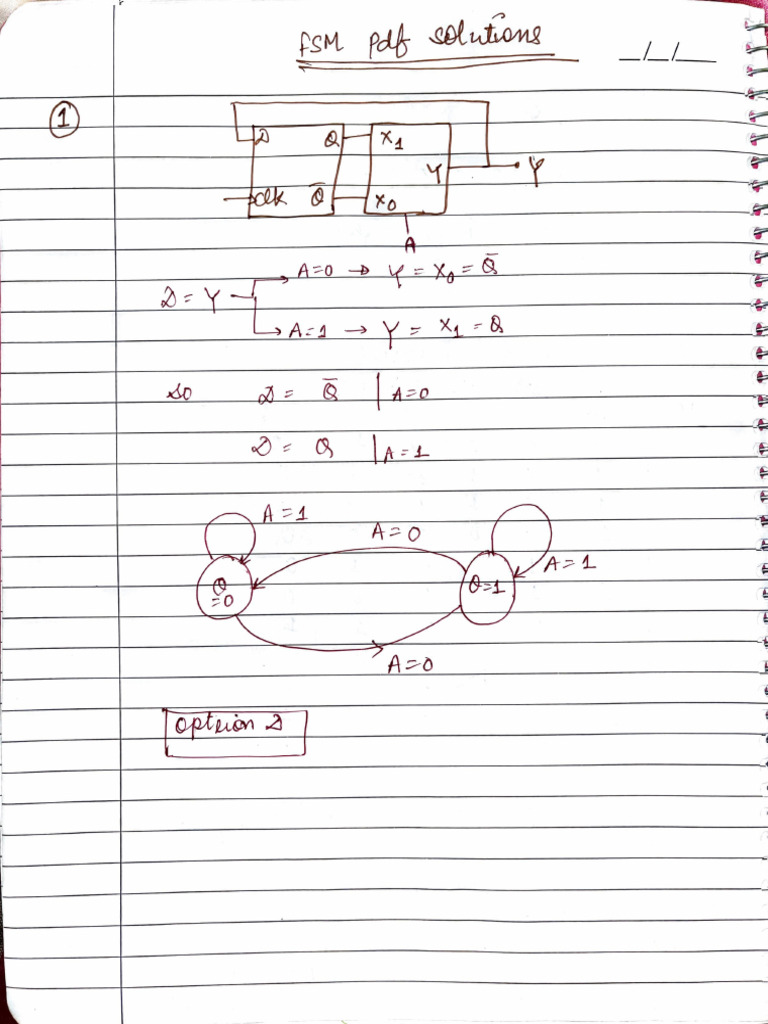 FSM pdf solutions
__/__/__
1
D Q X1
Y Y
clk Q̅ X0
A
A=0 → Y = X0 = Q̅
D = Y
A=1 → Y = X1 = Q
so D = Q̅ | A=0
D = Q | A=1
A=1
A=0
A=1
Q=0
Q=1
A=0
option D